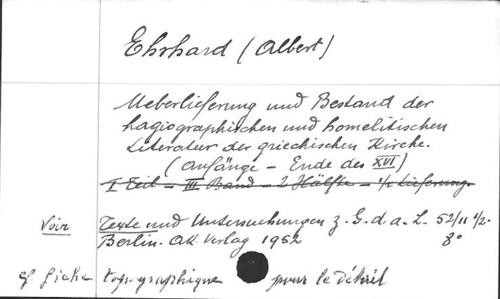 Ehrhard (Albert)
Ueberlieferung und Bestand der
hagiographischen und homelitischen
Literatur der griechischen Kirche.
(Anfänge - Ende des XVI)
I Teil - III Band - 2 Hälfte - 1/2 Lieferung.
Voir Texte und Untersuchungen z. G. d a. L. 52/II 1/2.
Berlin. Ak. Verlag 1952 8°
cf fiche topographique pour le détail